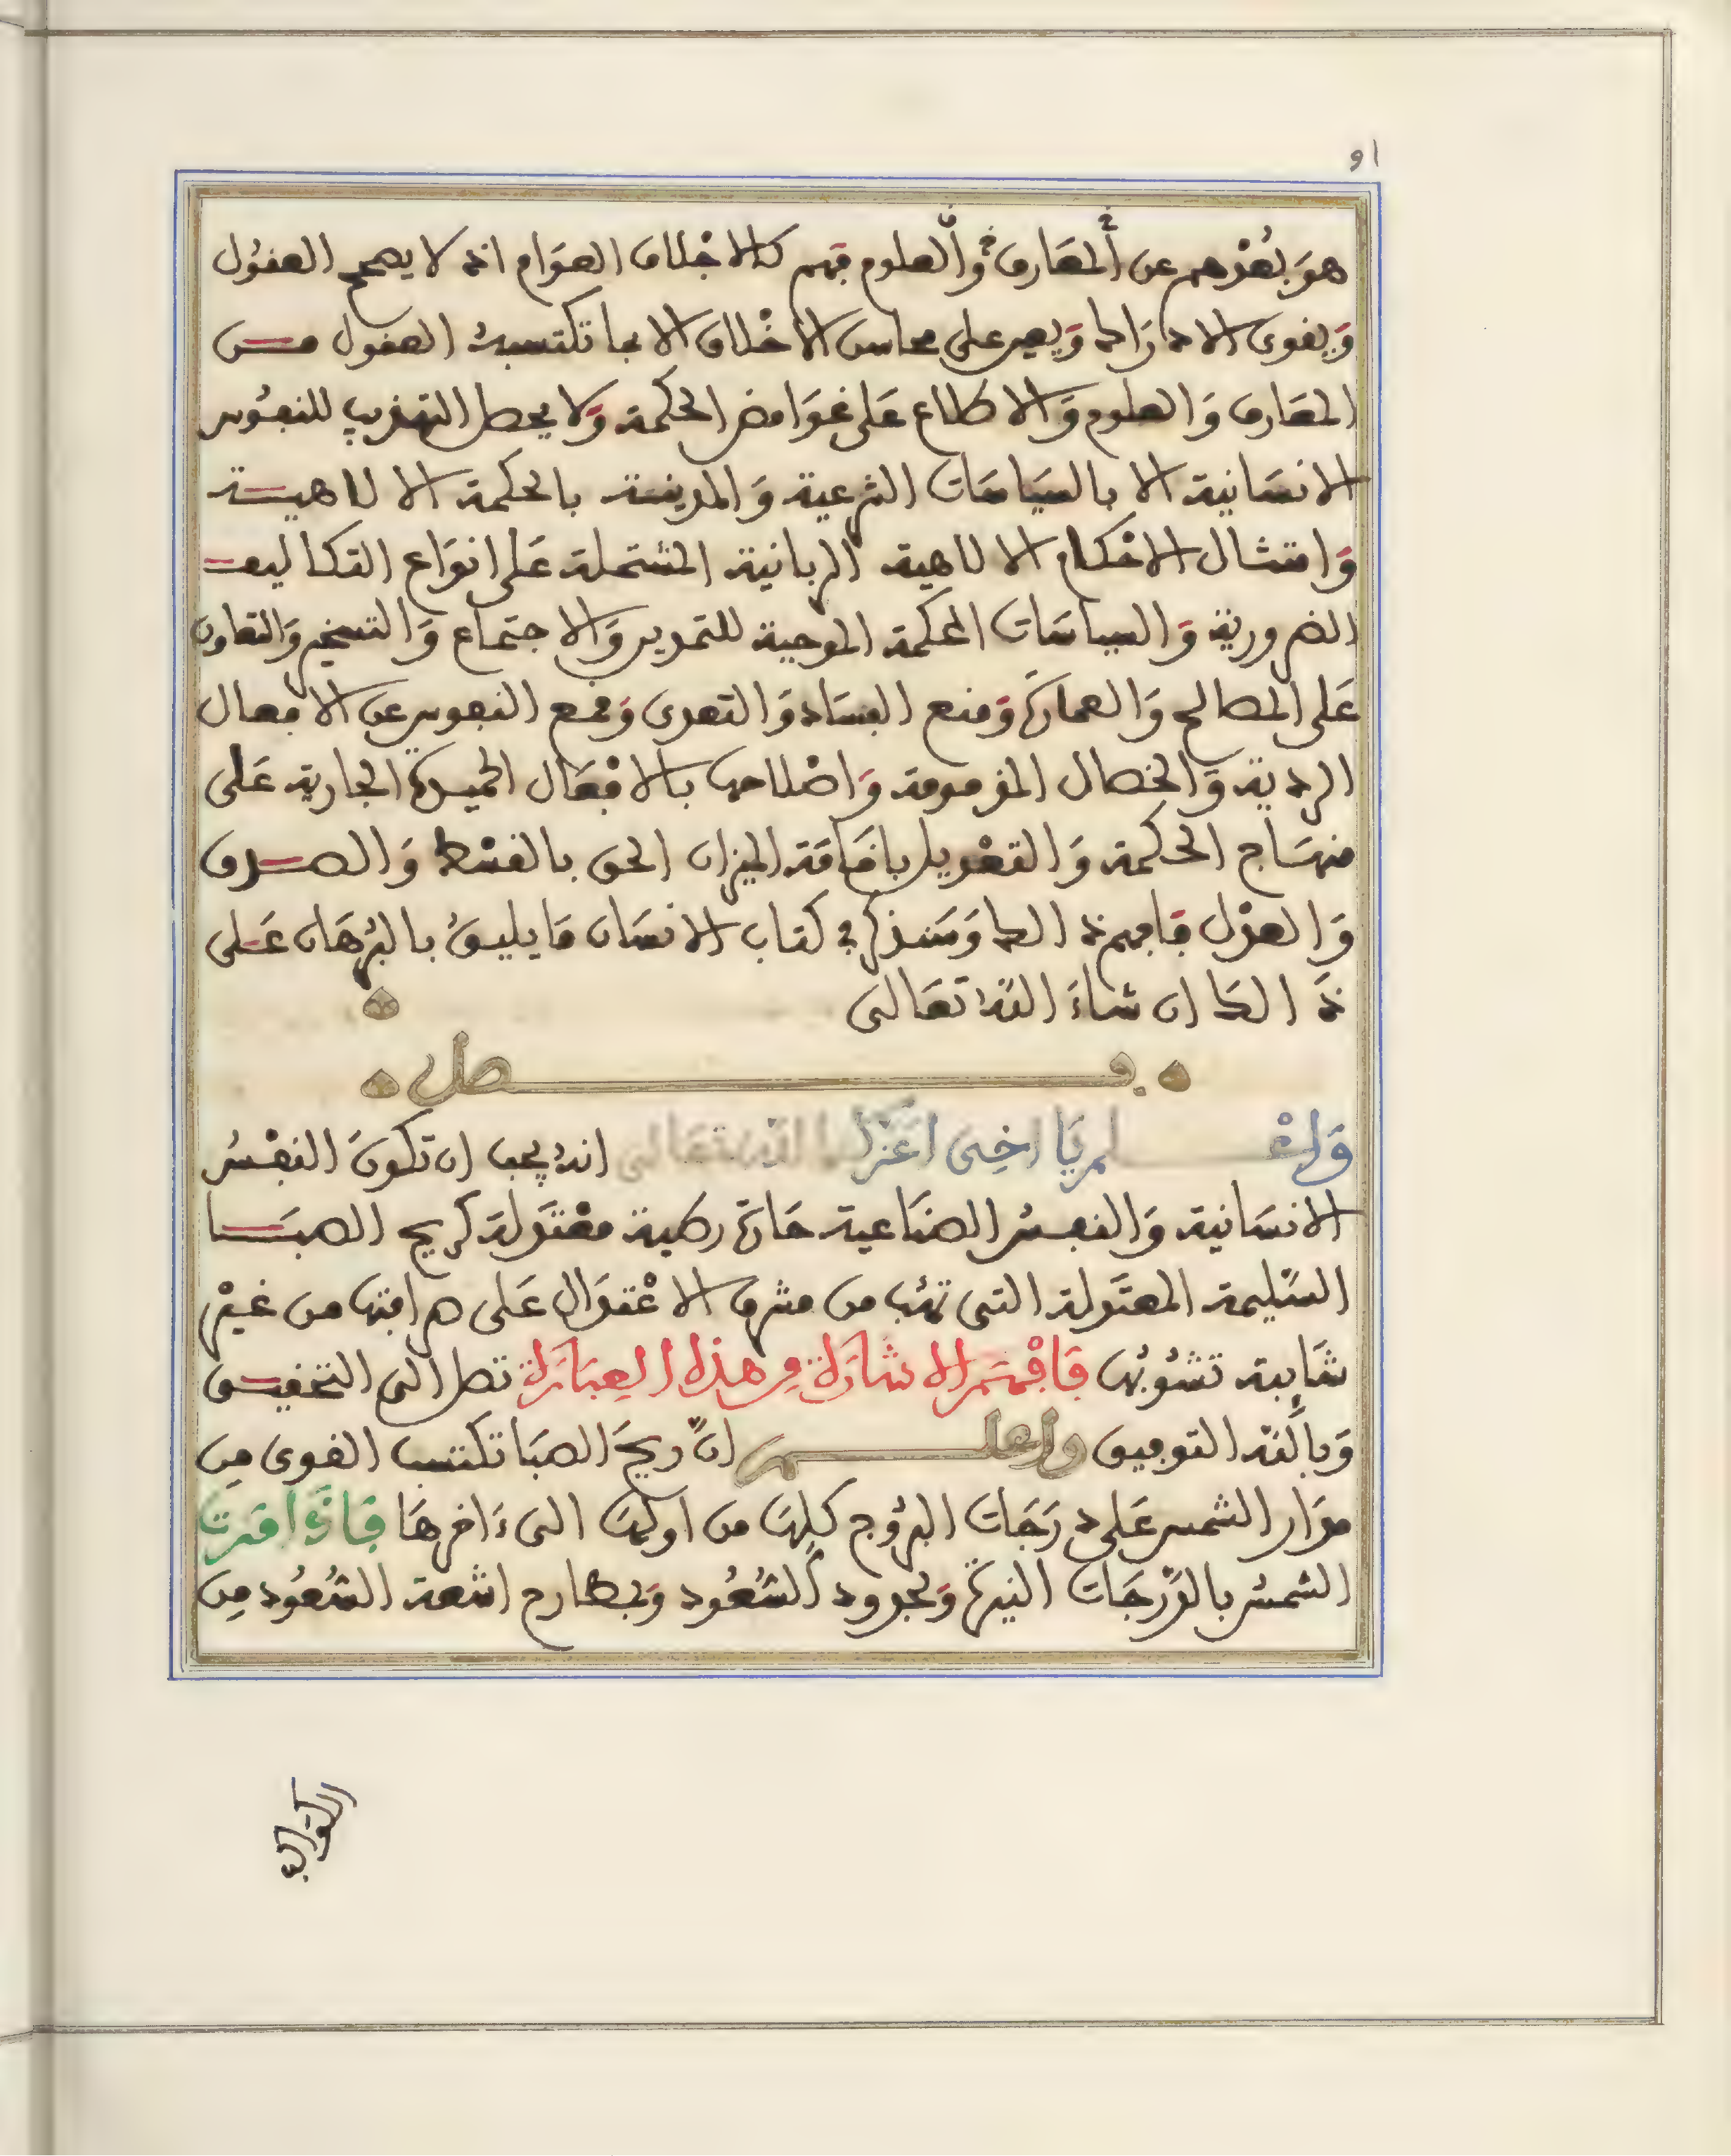 او
هوَ بُعْدهم عن ألمعَارف وَألعلوم فهم كالاجْلاف العوَام اذ لا يصحح العقوُل
وَيقوى الادرَاك وَيعين على محاسن الاخْلاق الا بما تكتسبهُ العقول مــن
المعَارف وَالعلوم وَالاطلاع عَلى غوَامض الحكمة وَلا يحصل التهذيب للنفوُس
الانسَانية الا بالسيَاسَات الشرعية وَالمدينية بالحكمة الالاهيــة
وَامتثال الاحْكام الالاهية الربانية المشتملة عَلى انوَاع التكاليف
الضرورية وَالسياسَات المحكمة الموجبة للتمدين وَالاجتماع وَالتسخير وَالتعاون
عَلى المصالح وَالعمارَة وَمنع الفسَاد وَالتعدى وَقمع النفوس عن الافعال
الردية وَالخصال المذمومة وَاصْلاحها بالافْعَال الحميدة الجارية عَلى
منهَاج الحكمة وَالتعْديل باقَامَة الميزان الحق بالقسْط وَالصــدق
وَالعدْل فَافهم ذالك وَسَنذكر في كتاب الانسَان مَا يليقُ بالبُرهَان عَــلى
ذَالكَ ان شاءَ اللهُ تعَالى
فــصل
وَاعْــلم يَا اخِى اعَزكَ الله تعَالى انهُ يجب ان تكونَ النفْسُ
الانسَانية وَالنفسُ الصنَاعية حَارة رطبة معْتدَلة كريح الصبَــا
السَليمة المعتدَلة التى تهُب من مشرق الاعْتدَال عَلى مرافتها من غيْر
شَايبة تشوُبُها فَافْهَم الاشارَة في هذه العِبَارَة تصل الى التحقيــق
وَبالله التوفيق وَاعلــم انَّ ريحَ الصبَا تكتسب القوى مِن
مدَار الشمس عَلى درَجَات البرُوج كلها من اولها الى ءَاخرهَا فَاذَا مَرت
الشمسُ بالدَرجَات النيرَة وَبحدود السُعُود وَبمطارح اشعة السُعُود مِن
الكوَاكب